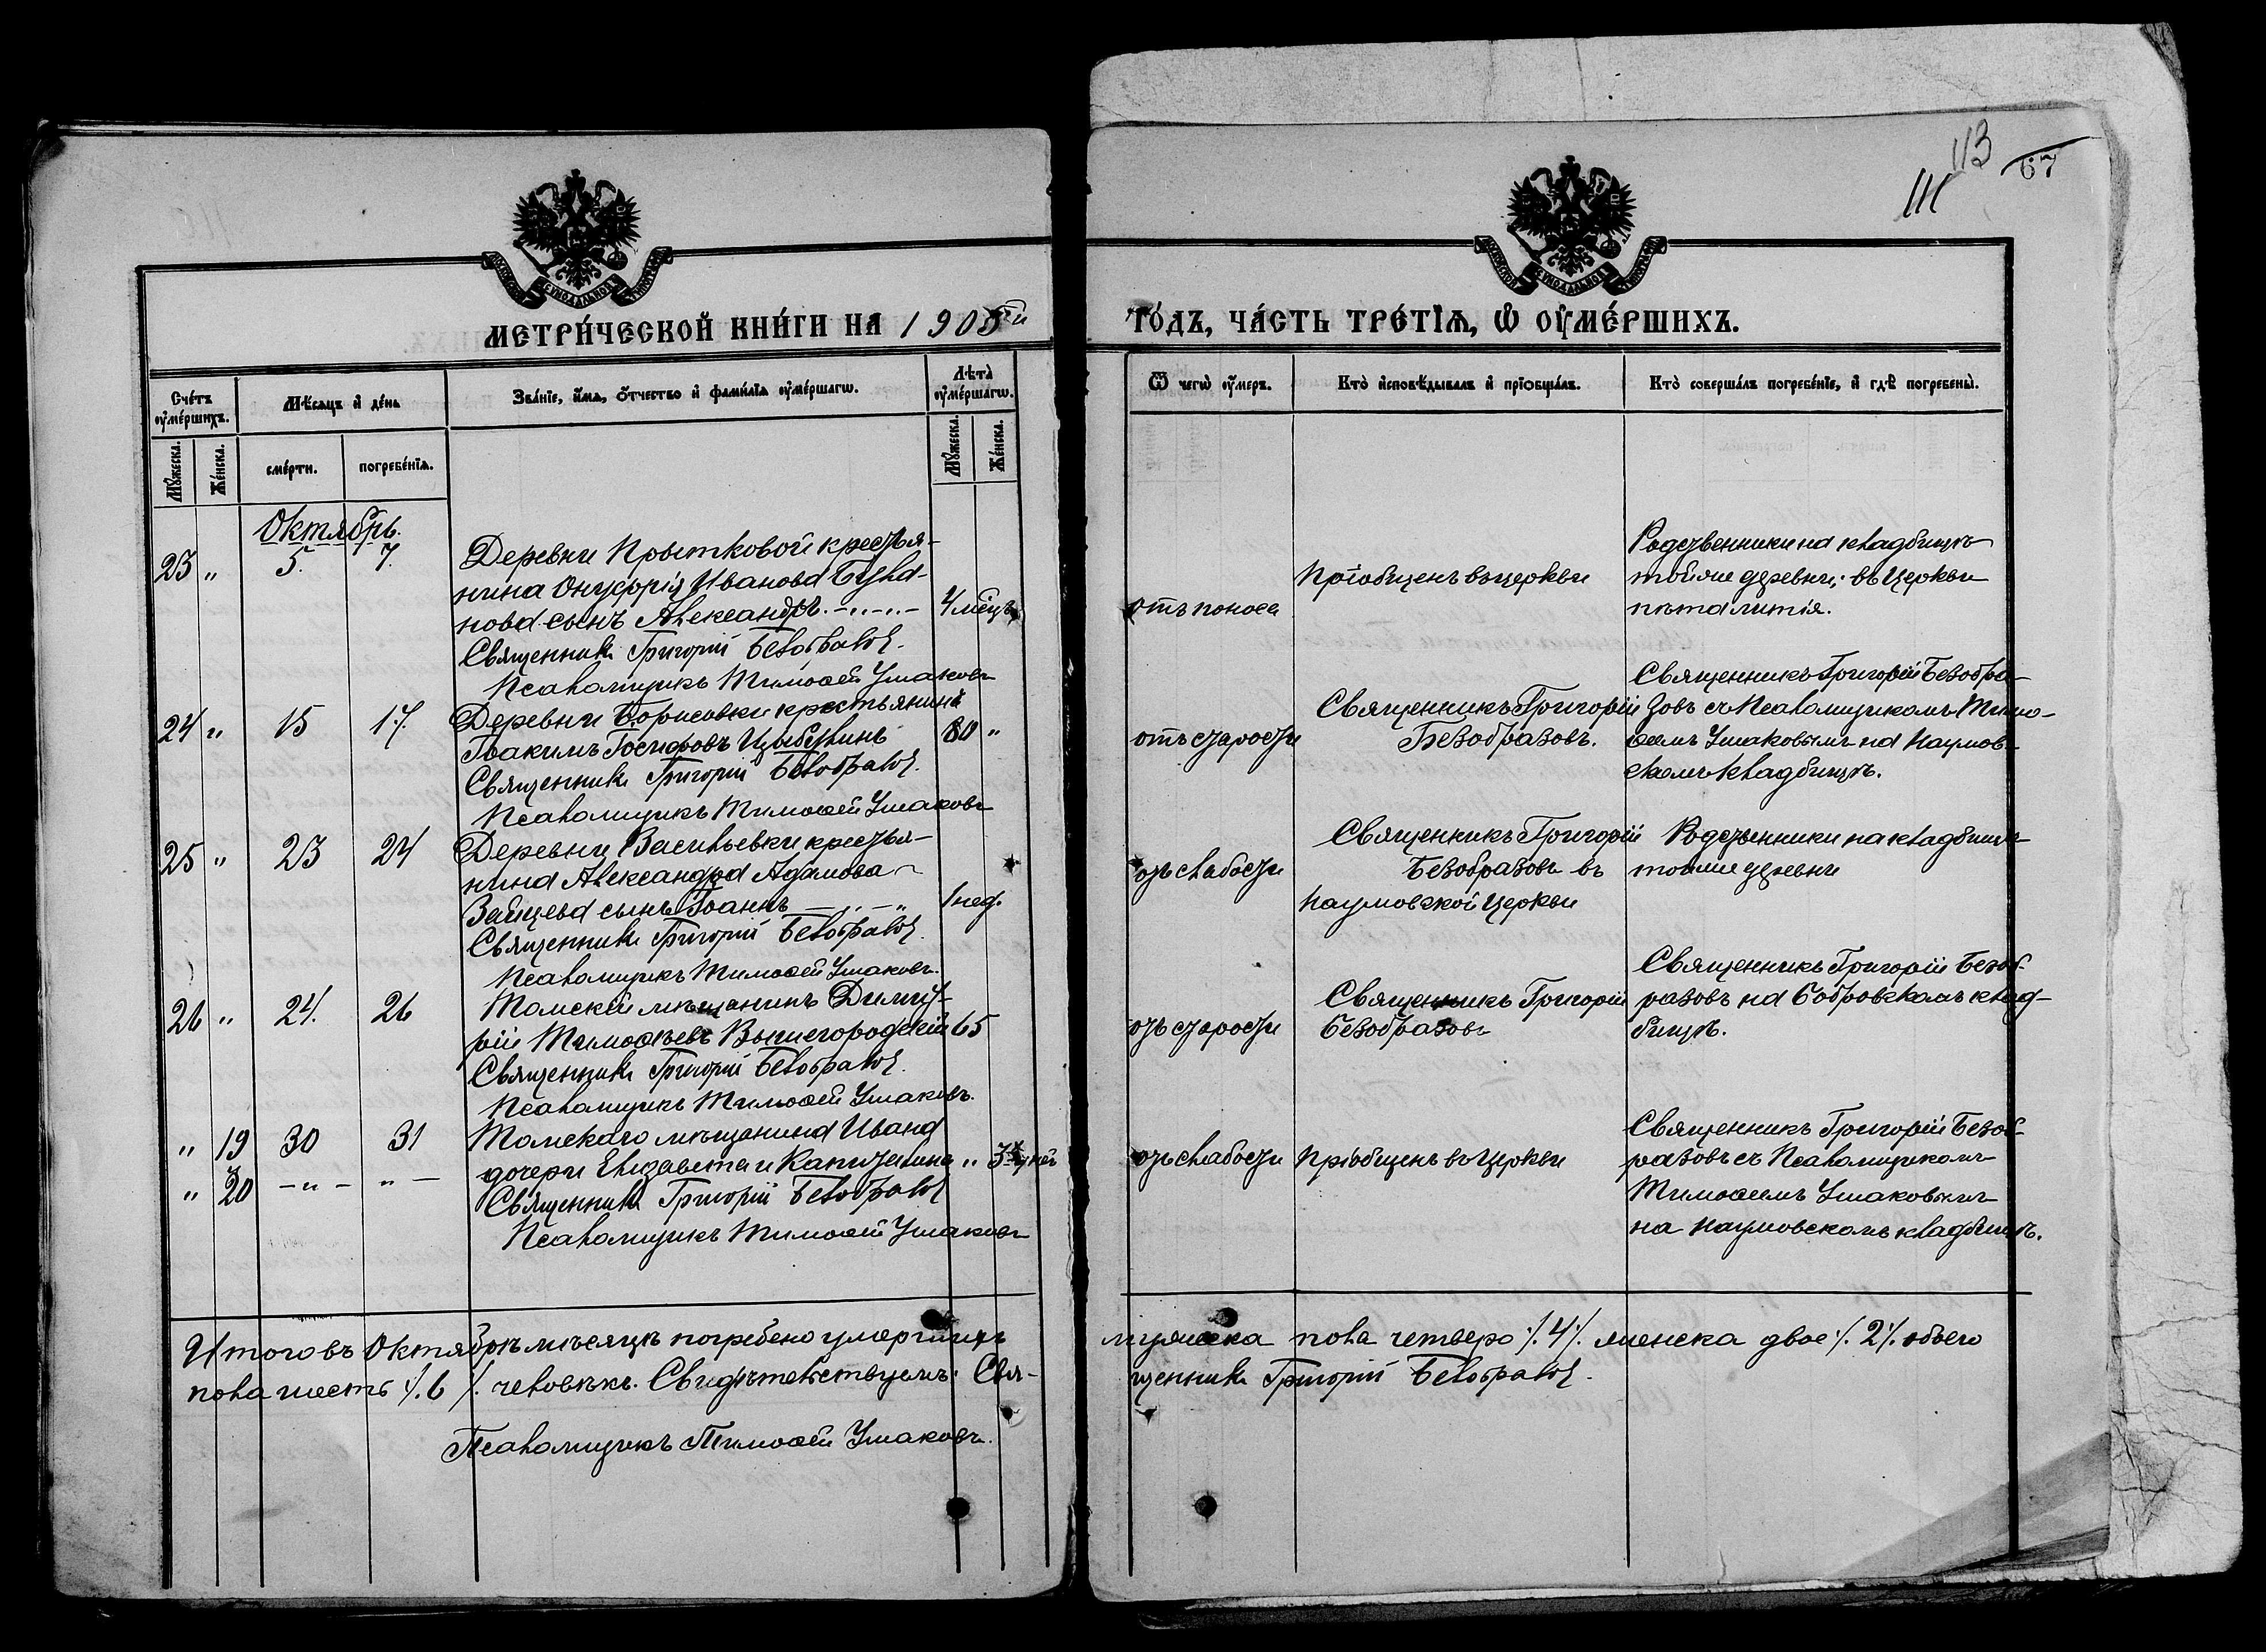 113
111
67
МЕТРИ́ЧЕСКОЙ КНИ́ГИ НА 1905ый
ГО́ДЪ, ЧА́СТЬ ТРЕ́ТІѦ, Ѡ҆ ОУ҆МЕ́РШИХЪ.
Сче́тъ оу҆ме́ршихъ.
Мѣ́сяцъ и҆ де́нь
Зва́нїе, и҆́мѧ, ѻ҆́тчество и҆ фами́лїѧ оу҆ме́ршагѡ.
Лѣ́та оу҆ме́ршагѡ.
Му́жеска.
Же́нска.
сме́рти.
погребе́нїѧ.
Му́жеска.
Же́нска.
Ѿ чегѡ̀ оу҆́меръ.
Кто̀ и҆сповѣ́дывалъ и҆ прїѡбща́лъ.
Кто̀ соверша́лъ погребе́нїе, и҆ гдѣ̀ погребены̀.
Октябрь.
23 " 5. 7.
Деревни Прытковой крестья-
нина Онуфрія Иванова Була-
нова сынъ Александръ. -"-"-
4 мѣсцъ
Священникъ Григорій Безобразовъ.
Псаломщикъ Тимоѳей Ушаковъ
отъ поноса
Пріобщенъ въ церкви
Родственники на кладбищѣ
той же деревни; въ Церкви
пѣта литія.
24 " 15 17.
Деревни Борисовки крестьянинъ
Іоакимъ Іосифовъ Цыбулинъ
80 "
Священникъ Григорій Безобразовъ.
Псаломщикъ Тимоѳей Ушаковъ
отъ старости
Священникъ Григорій
Безобразовъ.
Священникъ Григорій Безобра-
зовъ съ Псаломщикомъ Тимо-
ѳеемъ Ушаковымъ на Наумов-
скомъ кладбищѣ.
25 " 23 24
Деревни Васильевки крестья-
нина Александра Адамова
Зайцева сынъ Іоаннъ -"-"
1 нед.
Священникъ Григорій Безобразовъ.
Псаломщикъ Тимоѳей Ушаковъ.
отъ слабости
Священникъ Григорій
Безобразовъ въ
Наумовской Церкви
Родственники на кладбищѣ
той же деревни
26 " 24. 26
Томскій мѣщанинъ Димит-
рій Тимоѳеевъ Вышегородскій
65
Священникъ Григорій Безобразовъ.
Псаломщикъ Тимоѳей Ушаковъ.
отъ старости
Священникъ Григорій
Безобразовъ
Священникъ Григорій Безоб-
разовъ на Бобровскомъ клад-
бищѣ.
" 19 30 31
" 20 -"- "-
Томскаго мѣщанина Ивана
дочери Елизавета и Капитолина
"
Священникъ Григорій Безобразовъ
Псаломщикъ Тимоѳей Ушаковъ
отъ слабости
Пріобщенъ въ Церкви
Священникъ Григорій Безоб-
разовъ съ Псаломщикомъ
Тимоѳеемъ Ушаковымъ
на Наумовскомъ кладбищѣ.
Итого въ Октябрѣ мѣсяцѣ погребено умершихъ мужеска пола четверо ./. 4 ./. женска двое ./. 2 ./. обоего
пола шесть ./. 6 ./. человѣкъ. Свидѣтельствуемъ: Священникъ Григорій Безобразовъ.
Псаломщикъ Тимоѳей Ушаковъ.